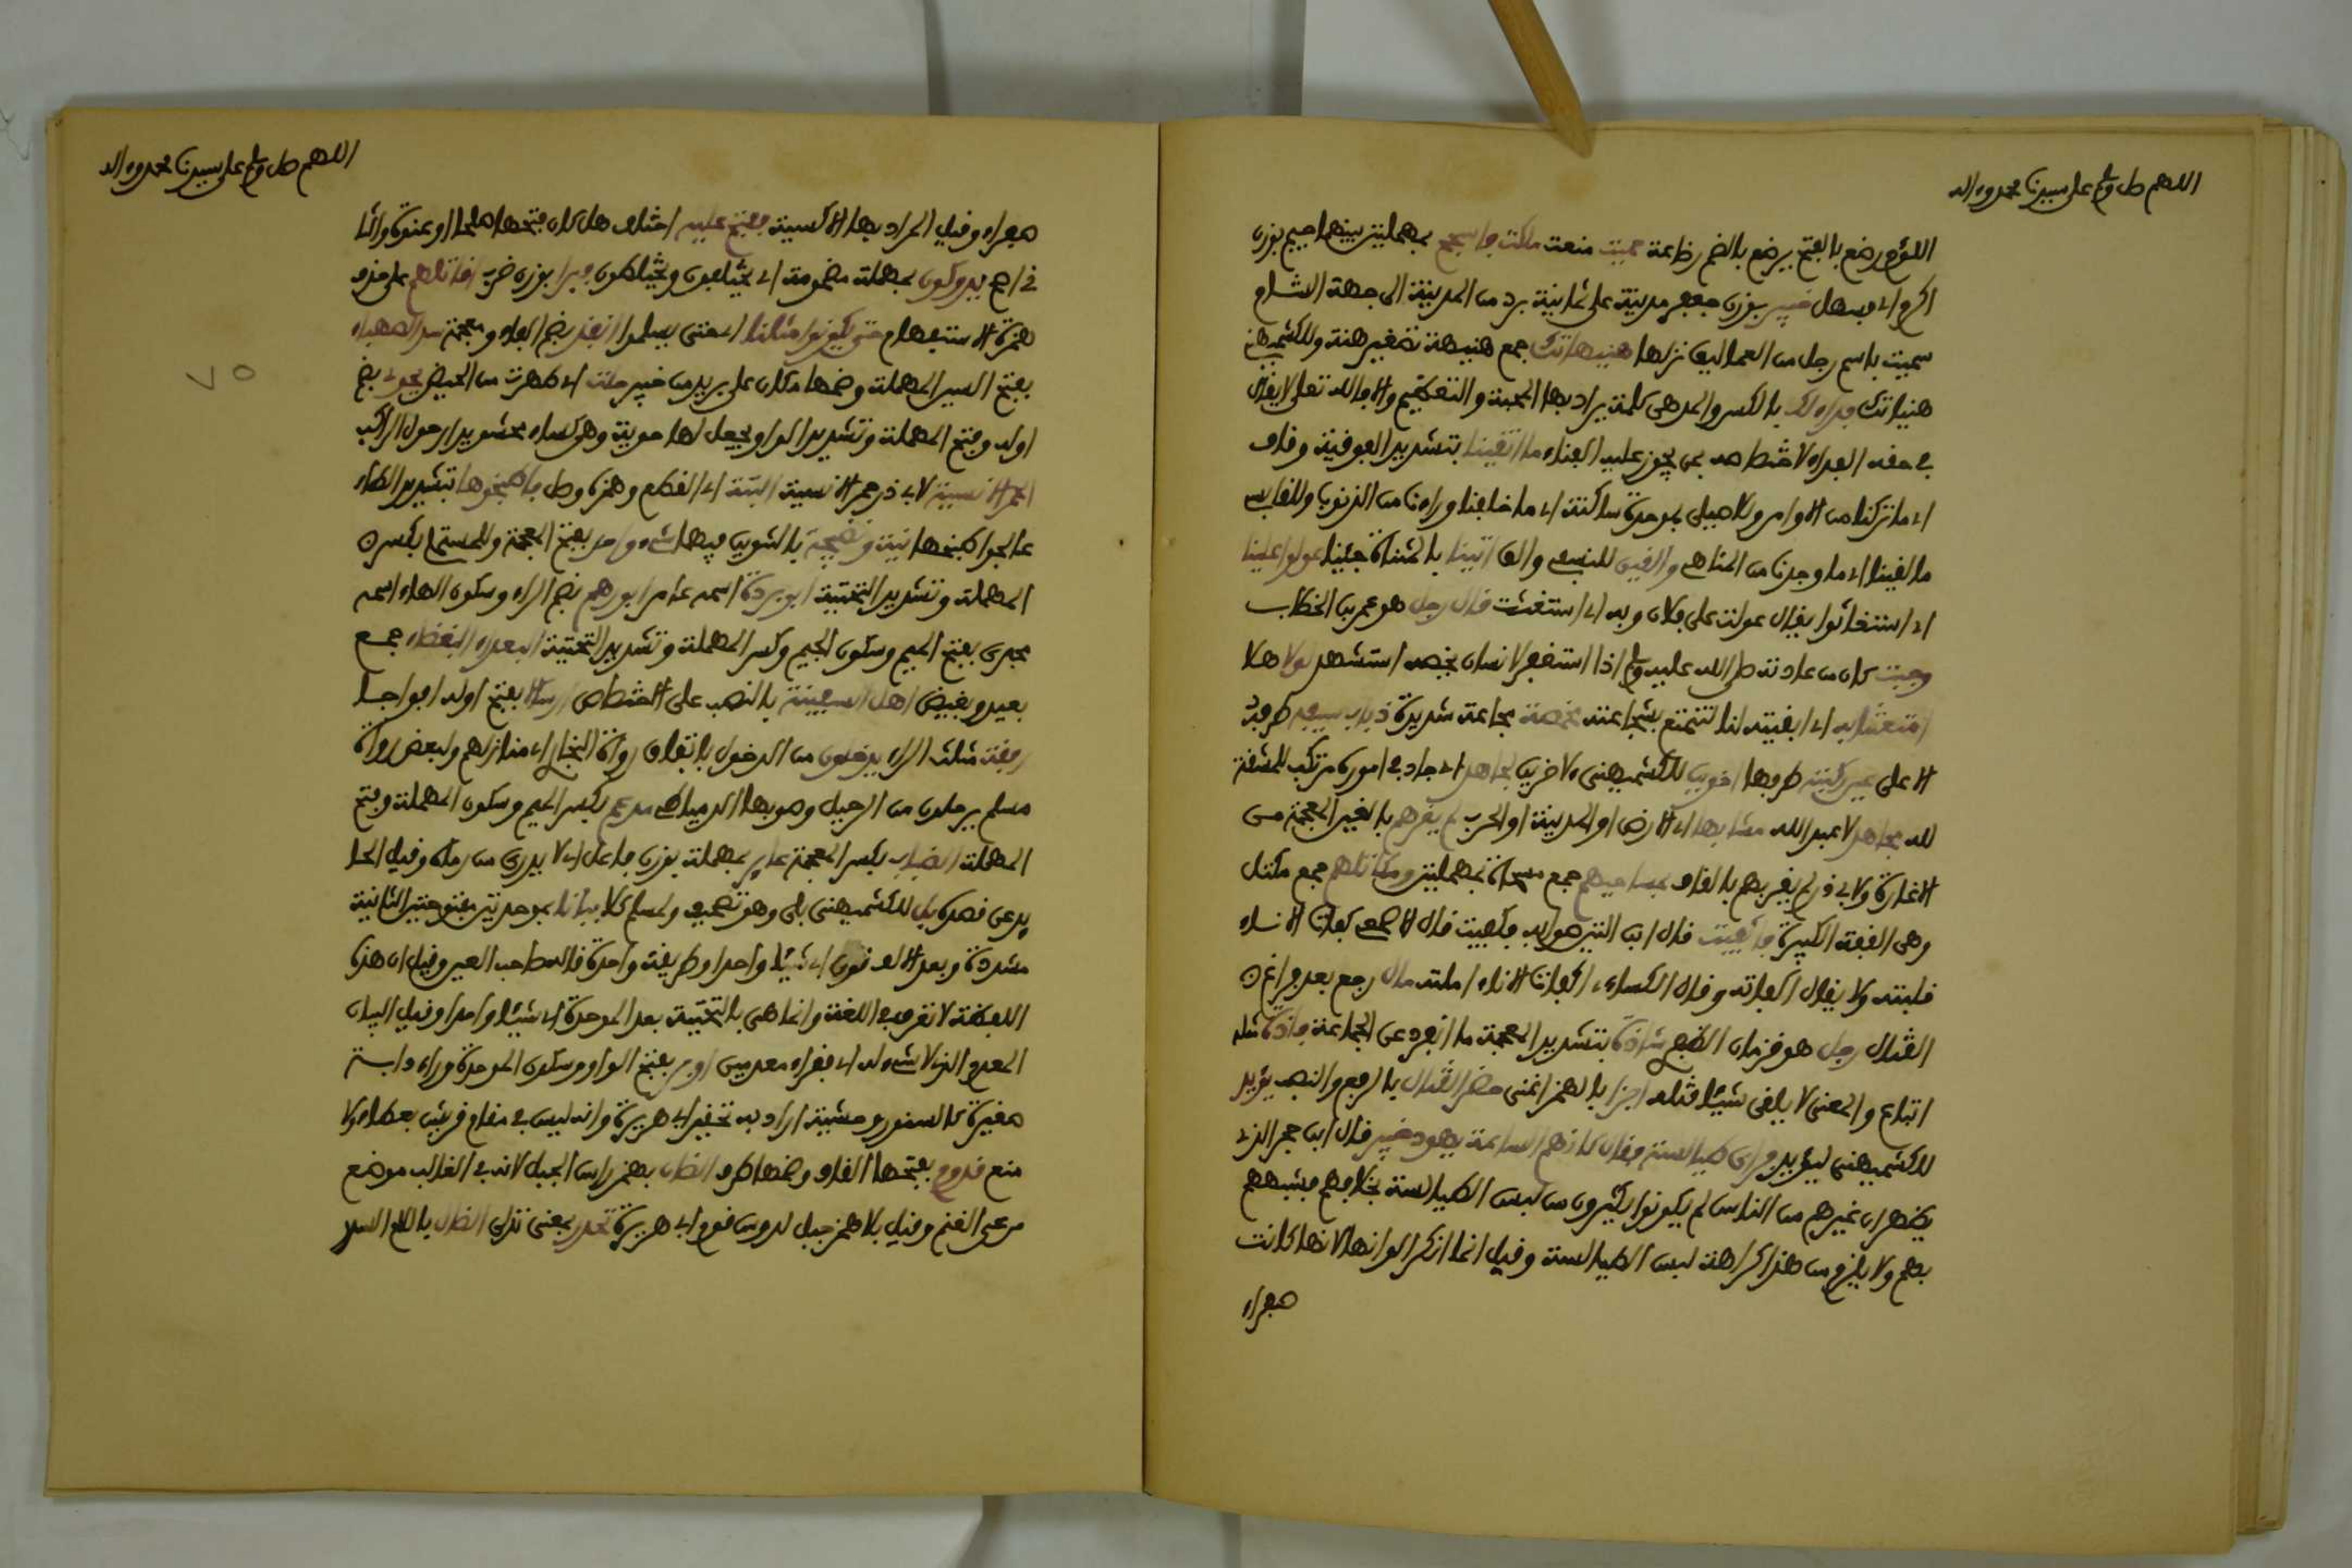 اللهم صل وسلم على سيدنا محمد وءاله
اللؤم رضع بالفتح يرضع بالضم رضاعة حميت منعت ملكت فاسجح بمهملتين بينهما جيم بوزن
اكرم اي فسهل خيبر بوزن جعفر مدينة على ثمانية برد من المدينة الى جهة الشام
سميت باسم رجل من العماليق نزلها هنيهاتك جمع هنيهة تصغير هنة وللكشميهني
هنياتك فداء لك بالكسر والمد هي كلمة يراد بها المحبة والتعظيم والا فالله تعلى لا يقال
في حقه الفداء لاختصاصه بمن يجوز عليه الفناء ما اتقينا بتشديد الفوقية وقاف
اي ما تركنا من الاوامر وللاصيلي بموحدة ساكنة اي ما خلفنا وراءنا من الذنوب وللقابسي
ما لقينا اي ما وجدنا من المناهي والقين للنسفي والق اتينا بالمثناة جئنا عولوا علينا
اي استغاثوا يقال عولت على فلان وبه اي استغثت قال رجل هو عمر بن الخطاب
وجبت كان من عادته صلى الله عليه وسلم اذا استغفر لانسان يخصه استشهد لولا هلا
امتعتنا به اي ابقيته لنا لنتمتع بشجاعته مخمصة مجاعة شديدة ذباب سيفه طرفه
الاعلى عين ركبته طرفها اخوين للكشميهني ولاخرين لجاهد اي جاد في اموره مرتكب للمشقة
لله مجاهد لاعبد الله مشا بها اي الارض او المدينة او الحرب لم يغرهم بالغين المعجمة من
الاغارة ولابي ذر لم يقربهم بالقاف بمساحيهم جمع مسحاة بمهملتين ومكاتلهم جمع مكتل
وهي القفة الكبيرة فاكفيت قال ابن التين صوابه فكفيت قال الاصمعي كفات الاناء
قلبته ولا يقال اكفاته وقال الكساءي اكفات الاناء املته مال رجع بعد فراغ
القتال رجل هو قزمان الظفري شاذة بتشديد المعجمة ما انفرد عن الجماعة فاذة مثله
اتباع والمعنى لا يلقى شيئا الا قتله اجزا بالهمز اغنى حضر القتال بالرفع والنصب يؤيد
للكشميهني ليؤيد فراى طيالسة فقال كانهم الساعة يهود خيبر قال ابن حجر الذي
يظهر ان غيرهم من الناس لم يكونوا يكثرون من لبس الطيالسة بخلافهم فشبههم
بهم ولا يلزم من هذا كراهة لبس الطيالسة وقيل انما انكر الوانها لانها كانت
صفراء
اللهم صل وسلم على سيدنا محمد وءاله
صفراء وقيل المراد بها الاكسية يفتح عليه اختلف هل كان فتحها صلحا او عنوة والثا
ني اصح يدوكون بمهملة مضمومة اي يختلفون ويختلطون فبرا بوزن ضرب اقاتلهم على حذف
همزة الاستفهام حتى يكونوا مثلنا اي حتى يسلموا انفذ بضم الفاء ومعجمة سد الصهباء
بفتح السين المهملة وضمها مكان على بريد من خيبر حلت اي طهرت من الحيض يحوي بضم
اوله وفتح المهملة وتشديد الواو يجعل لها حوية وهو كساء محشو يدار حول الراكب
الحمر الانسية لابي ذر حمر الانسية البتة اي القطع وهمزه وصل فاطبخوها بتشديد الطاء
عالجوا طبخها نية ونضيجة بالتنوين فيهما شيء واحد بفتح المعجمة وللمستملي بكسر
المهملة وتشديد التحتية ابو بردة اسمه عامر ابو رهم بضم الراء وسكون الهاء اسمه
مجدى بفتح الميم وسكون الجيم وكسر المهملة وتشديد التحتية البعداء البغضاء جمع
بعيد وبغيض اهل السفينة بالنصب على الاختصاص ارسالا بفتح اوله افواجا
رفقة مثلث الراء يدخلون من الدخول باتفاق رواة البخاري اي منازلهم ولبعض رواة
مسلم يرحلون من الرحيل وصوبها الدمياطي مدعم بكسر الميم وسكون المهملة وفتح
المهملة الضباب بكسر المعجمة عاير بمهملة بوزن فاعل اي لا يدري من رماه وقيل الحا
يد عن قصده بل للكشميهني بلى وهو تصحيف ولمسلم كلا ببانا بموحدتين مفتوحتين الثانية
مشددة وبعد الالف نون اي شيئا واحدا وطريقة واحدة قال صاحب العين وقيل ان هذه
اللفظة لا تعرف في اللغة وانما هي بالتحتية بعد الموحدة اي شيئا واحدا وقيل البيان
المعدم الذي لا شيء له اي فقراء معدمين اوبر بفتح الواو وسكون الموحدة وراء دابة
صغيرة كالسنور وحشية اراد به تحقير ابي هريرة وانه ليس في مقام قريش بعطاء ولا
منع قدوم بفتحها القاف وضمها طرف الضان بهمز راس الجبل لانه في الغالب موضع
مرعى الغنم وقيل بلا همز جبل لدوس قوم ابي هريرة تحدر بمعنى تدلى الضال باللام السدر
٧٥